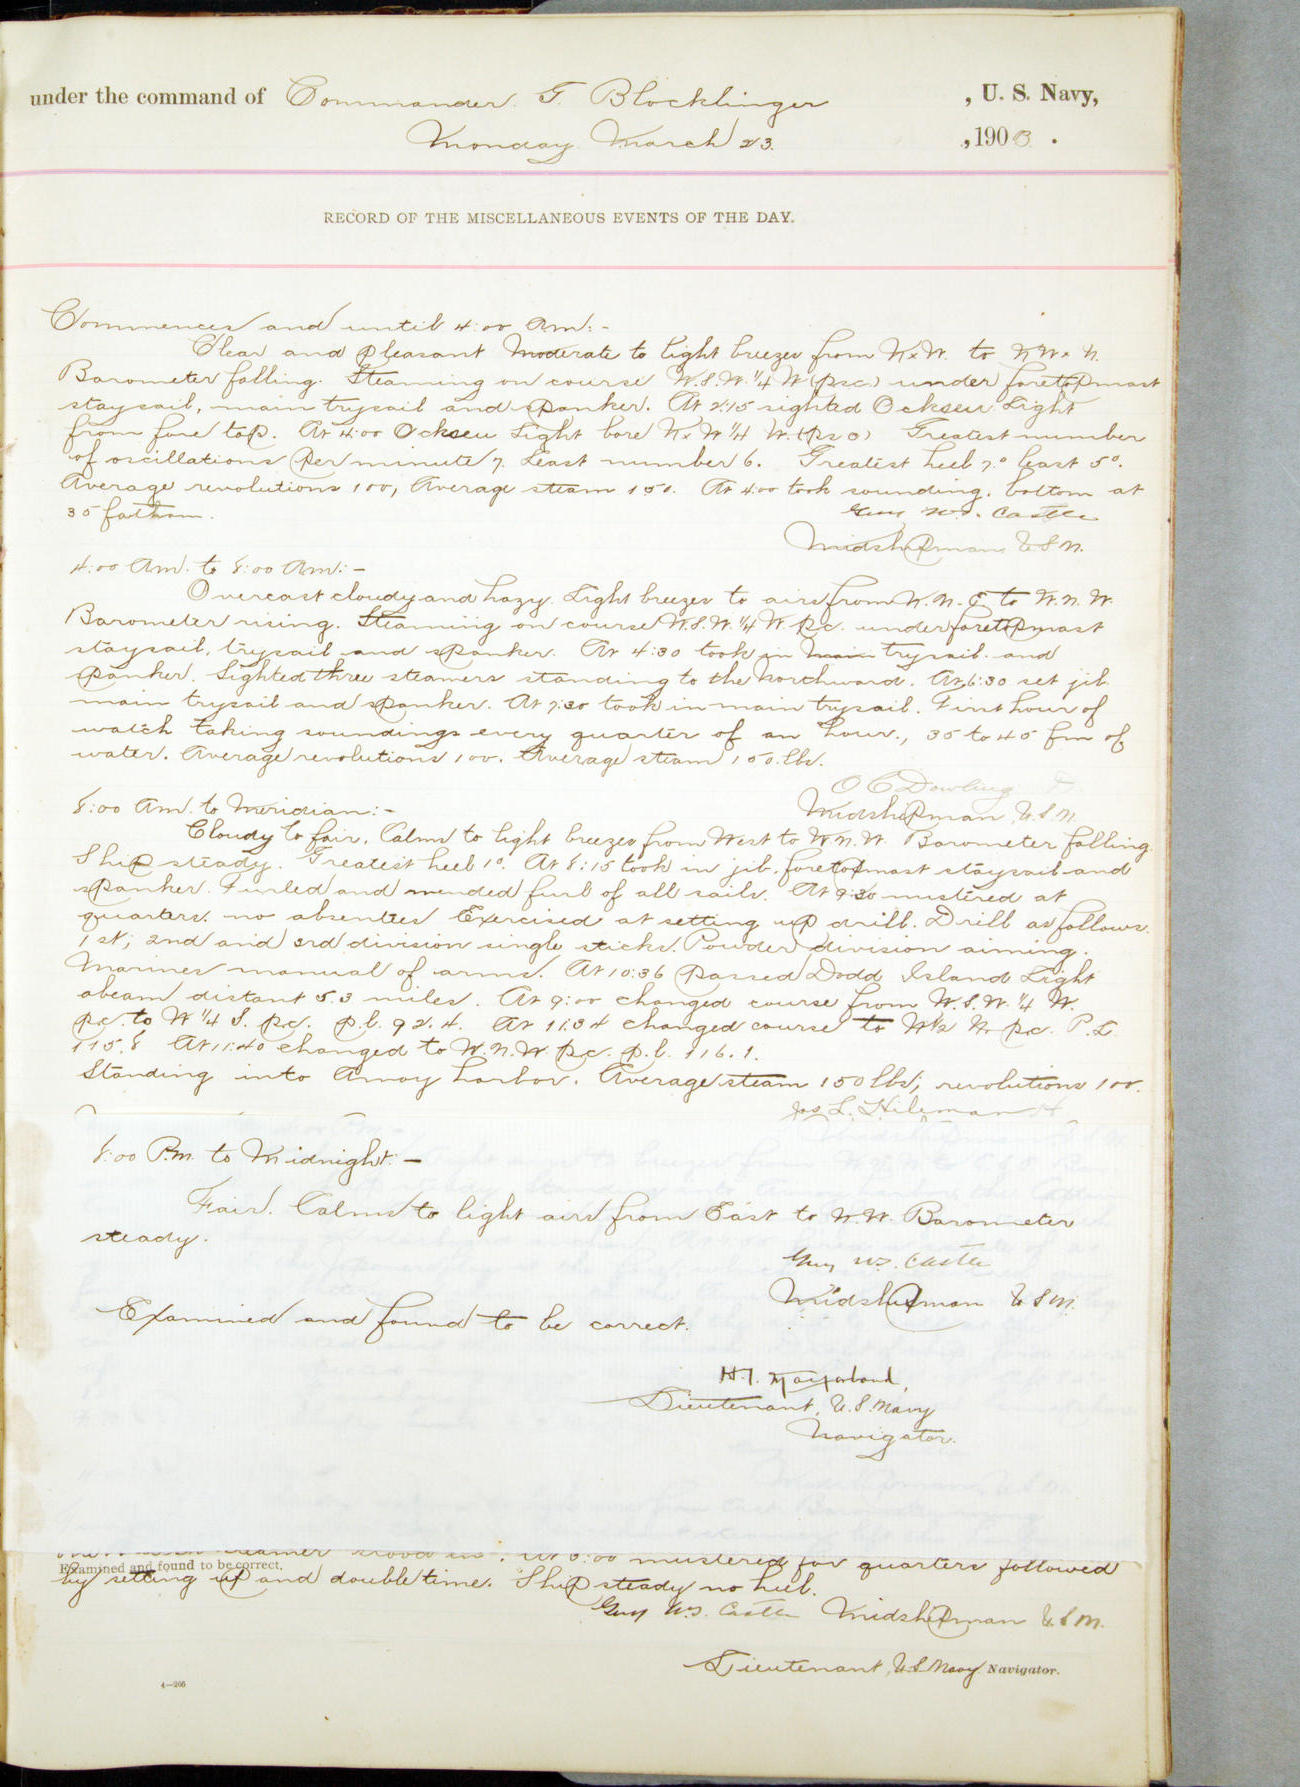 under the command of Commander G. Blocklinger, U. S. Navy,
Monday March 23, 1903.
RECORD OF THE MISCELLANEOUS EVENTS OF THE DAY.
Commences and until 4:00 Am:-
Clear and pleasant Moderate to light breezes from NxW. to NWxN.
Barometer falling. Steaming on course W.S.W. 1/4 W (psc.) under foretopmast
staysail, main trysail and spanker. At 2:15 sighted Ockseu Light
from fore top. At 4:00 Ockseu Light bore NxW 1/4 W. (psc) Greatest number
of oscillations per minute 7. Least number 6. Greatest heel 7.° least 5°.
Average revolutions 100, Average steam 150. At 4:00 took sounding. bottom at
35 fathom.
Guy W.S. Castle
Midshipman U.S.N.
4:00 Am. to 8:00 Am:-
Overcast cloudy and hazy. Light breezes to airs from N.N.E to W.N.W.
Barometer rising. Steaming on course W.S.W. 1/4 W. p.c. under foretopmast
staysail, trysail and spanker. At 4:30 took in main trysail and
spanker. Sighted three steamers standing to the Northward. At 6:30 set jib
main trysail and spanker. At 7:30 took in main trysail. First hour of
watch taking soundings every quarter of an hour., 35 to 45 fm of
water. Average revolutions 100. Average steam 150 lbs.
O C Dowling
Midshipman, U.S.N.
8:00 Am. to Meridian:-
Cloudy to fair. Calms to light breezes from West to W.N.W. Barometer falling.
Ship steady. Greatest heel 1°. At 8:15 took in jib, foretopmast staysail and
spanker. Furled and mended furl of all sails. At 9:30 mustered at
quarters. no absentees Exercised at setting up drill. Drill as follows.
1st; 2nd and 3rd division single sticks. Powder division aiming.
Marines manual of arms. At 10:36 passed Dodd Island Light
abeam distant 5.3 miles. At 9:00 changed course from W.S.W. 1/4 W.
p.c. to W 1/4 S. p.c. p.l. 92.4. At 11:34 changed course to W 1/2 N p.c. P.L.
115.8 At 11:40 changed to W.N.W. p.c. p.l. 116.1.
Standing into Amoy harbor. Average steam 150 lbs, revolutions 100.
Jas L. Hileman
8:00 P.m. to Midnight:-
Fair. Calms to light airs from East to N.W. Barometer
steady.
Guy W.S. Castle
Midshipman U.S.N.
Examined and found to be correct.
Lieutenant, U.S. Navy
Navigator.
steamer stood in. At 5:00 mustered for quarters followed
Examined and found to be correct.
by setting up and double time. Ship steady no heel.
Guy W.S. Castle Midshipman U.S.N.
Lieutenant, U.S. Navy Navigator.
4—266